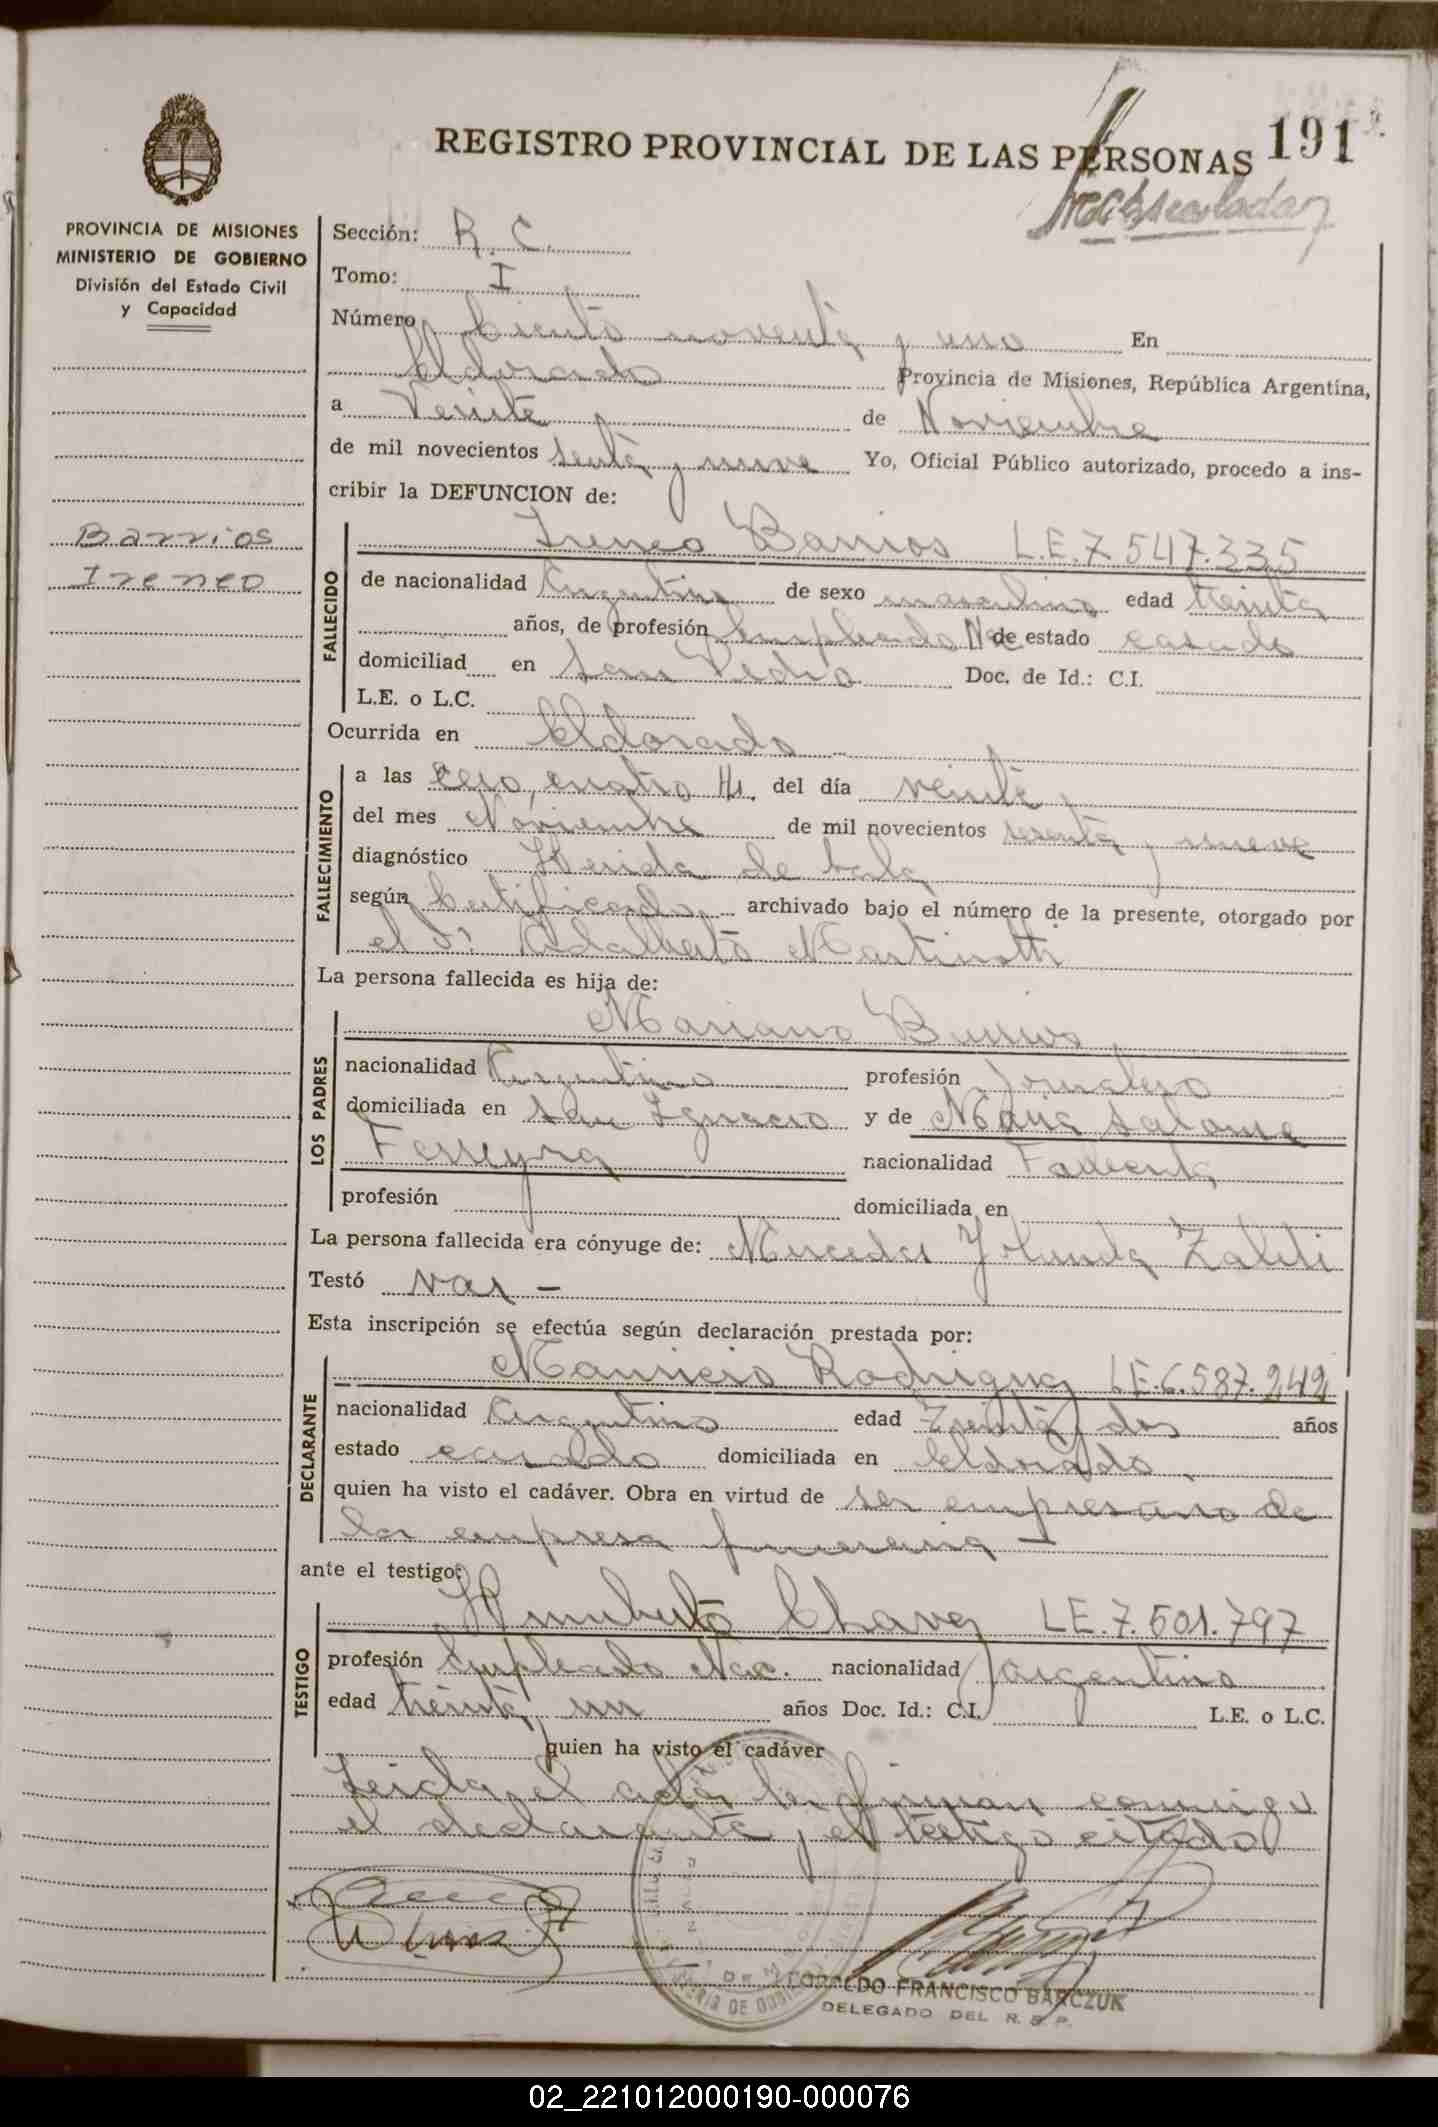 REGISTRO PROVINCIAL DE LAS PERSONAS 191
PROVINCIA DE MISIONES
MINISTERIO DE GOBIERNO
División del Estado Civil
y Capacidad
Barrios
Ireneo
Sección: R. C.
Tomo: I
Número Ciento noventa y uno En
Eldorado Provincia de Misiones, República Argentina,
a Veinte de Noviembre
de mil novecientos senta y nueve Yo, Oficial Público autorizado, procedo a ins-
cribir la DEFUNCION de:
FALLECIDO
Ireneo Barrios L.E. 7.547.335
de nacionalidad Argentina de sexo masculino edad treinta
años, de profesión Empleado Nac de estado casado
domiciliad en San Pedro Doc. de Id.: C.I.
L.E. o L.C.
Ocurrida en Eldorado
FALLECIMIENTO
a las cero, cuatro Hs. del día veinte
del mes Noviembre de mil novecientos sesenta y nueve
diagnóstico Herida de bala
según Certificado archivado bajo el número de la presente, otorgado por
el Dr. Adalberto Martinotti
La persona fallecida es hija de:
LOS PADRES
Mariano Barrios
nacionalidad Argentino profesión Jornalero
domiciliada en San Ignacio y de Maria Salome
Ferreyra nacionalidad
profesión domiciliada en
La persona fallecida era cónyuge de: Mercedes Yolanda
Testó
Esta inscripción se efectúa según declaración prestada por:
DECLARANTE
Mauricio Rodriguez L.E. 6.587.242
nacionalidad Argentino edad Treinta y dos años
estado casado domiciliada en Eldorado.
quien ha visto el cadáver. Obra en virtud de ser empresario de
la empresa funeraria
ante el testigo:
TESTIGO
Humberto Chavez L.E. 7.501.797
profesión Empleado Nac. nacionalidad argentino
edad treinta y un años Doc. Id.: C.I. L.E. o L.C.
quien ha visto el cadáver
Leida el acta la firman conmigo
el declarante y el testigo citado
LEOPOLDO FRANCISCO BARCZUK
DELEGADO DEL R. P. P.
02_221012000190-000076